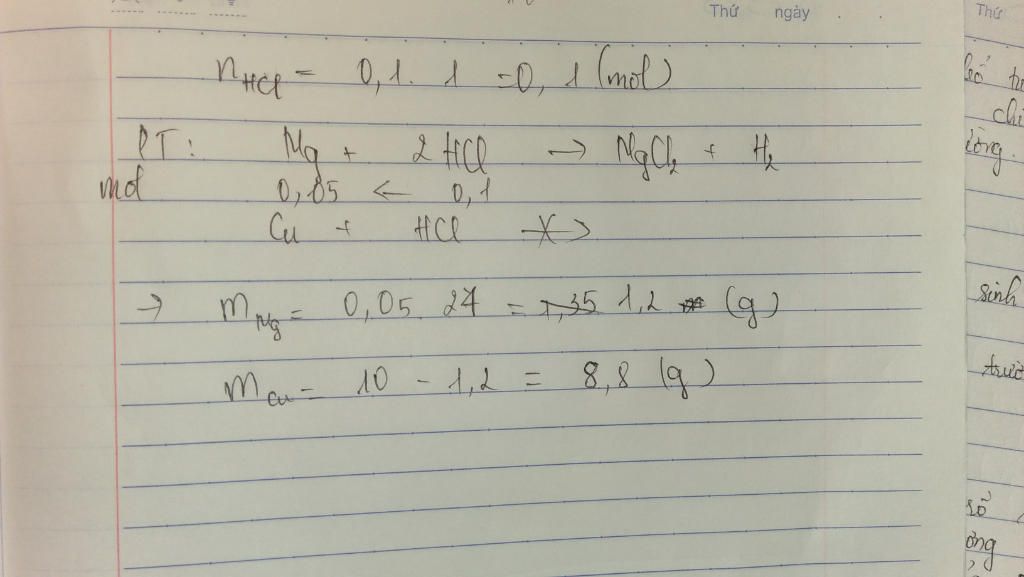 Thứ ngày . .
Thứ
n HCl = 0,1 . 1 = 0,1 (mol)
PT: Mg + 2 HCl → MgCl₂ + H₂
mol 0,05 ← 0,1
Cu + HCl -X->
→ m Mg = 0,05 . 24 = 1,35 1,2 (g)
m Cu = 10 - 1,2 = 8,8 (g)
sinh
trườ
số